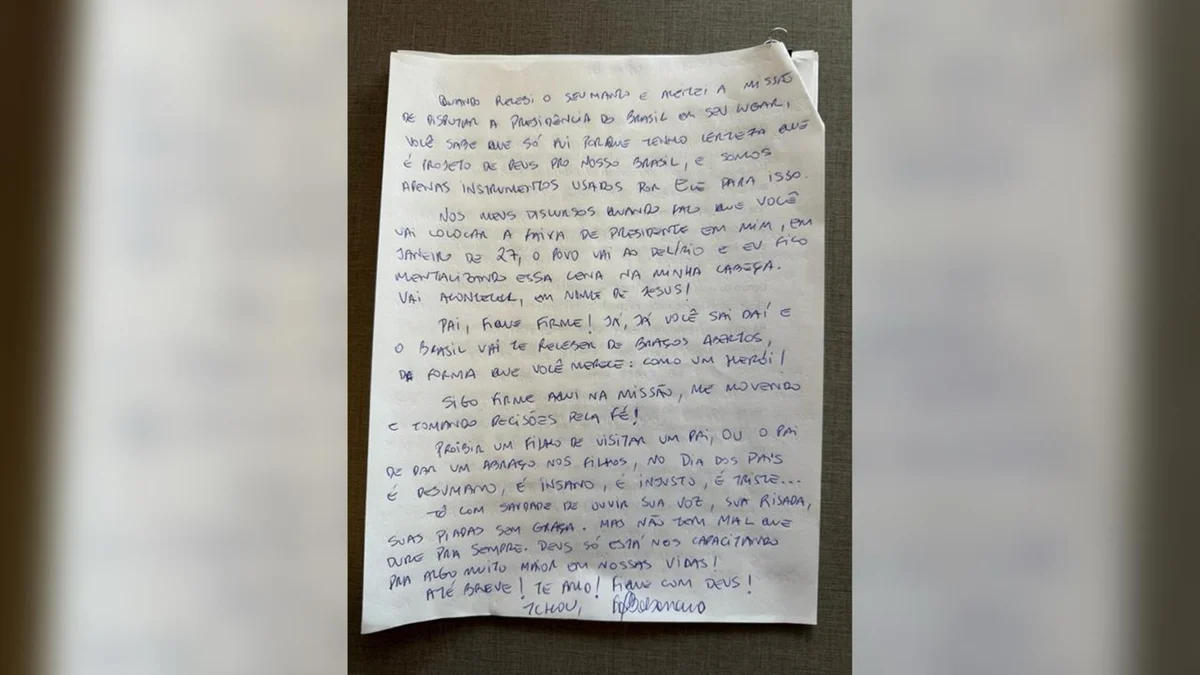 QUANDO RECEBI O SEU MANTO E ACEITEI A MISSÃO
DE DISPUTAR A PRESIDÊNCIA DO BRASIL EM SEU LUGAR,
VOCÊ SABE QUE SÓ FUI PORQUE TENHO CERTEZA QUE
É PROJETO DE DEUS PRO NOSSO BRASIL, E SOMOS
APENAS INSTRUMENTOS USADOS POR ELE PARA ISSO.
NOS MEUS DISCURSOS QUANDO FALO QUE VOCÊ
VAI COLOCAR A FAIXA DE PRESIDENTE EM MIM, EM
JANEIRO DE 27, O POVO VAI AO DELÍRIO E EU FICO
MENTALIZANDO ESSA CENA NA MINHA CABEÇA.
VAI ACONTECER, EM NOME DE JESUS!
PAI, FIQUE FIRME! JÁ, JÁ VOCÊ SAI DAÍ E
O BRASIL VAI TE RECEBER DE BRAÇOS ABERTOS,
DA FORMA QUE VOCÊ MERECE: COMO UM HERÓI!
SIGO FIRME AQUI NA MISSÃO, ME MOVENDO
E TOMANDO DECISÕES PELA FÉ!
PROIBIR UM FILHO DE VISITAR UM PAI, OU O PAI
DE DAR UM ABRAÇO NOS FILHOS, NO DIA DOS PAIS
É DESUMANO, É INSANO, É INJUSTO, É TRISTE...
TÔ COM SAUDADE DE OUVIR SUA VOZ, SUA RISADA,
SUAS PIADAS SEM GRAÇA. MAS NÃO TEM MAL QUE
DURE PRA SEMPRE. DEUS SÓ ESTÁ NOS CAPACITANDO
PRA ALGO MUITO MAIOR EM NOSSAS VIDAS!
ATÉ BREVE! TE AMO! FIQUE COM DEUS!
TCHOU, Bolsonaro